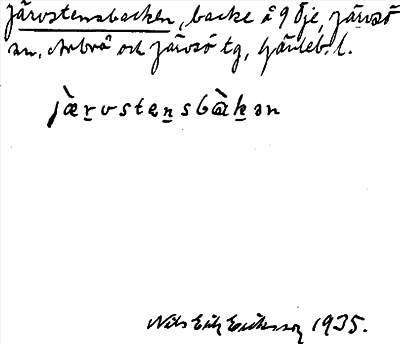 Järvstensbacken, backe å 9 Öje, Järvsö
sn, Arbrå och Järvsö tg, Gävleb. l.
jæ̀rvstensbàkən
Nils Erik Eriksson 1935.